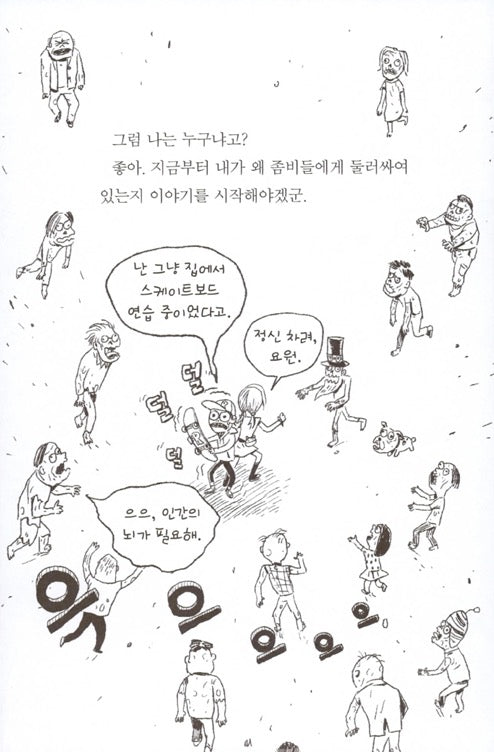 그럼 나는 누구냐고?
좋아. 지금부터 내가 왜 좀비들에게 둘러싸여
있는지 이야기를 시작해야겠군.
난 그냥 집에서
스케이트보드
연습 중이었다고.
정신 차려,
요원.
덜
덜
덜
으으, 인간의
뇌가 필요해.
읏 으 으 으 으